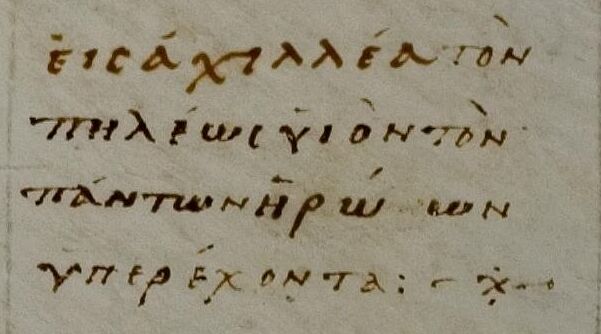 εἰς ἀχιλλέα τὸν
πηλέως υἱὸν τὸν
πάντων ἡρώων
ὑπερέχοντα: